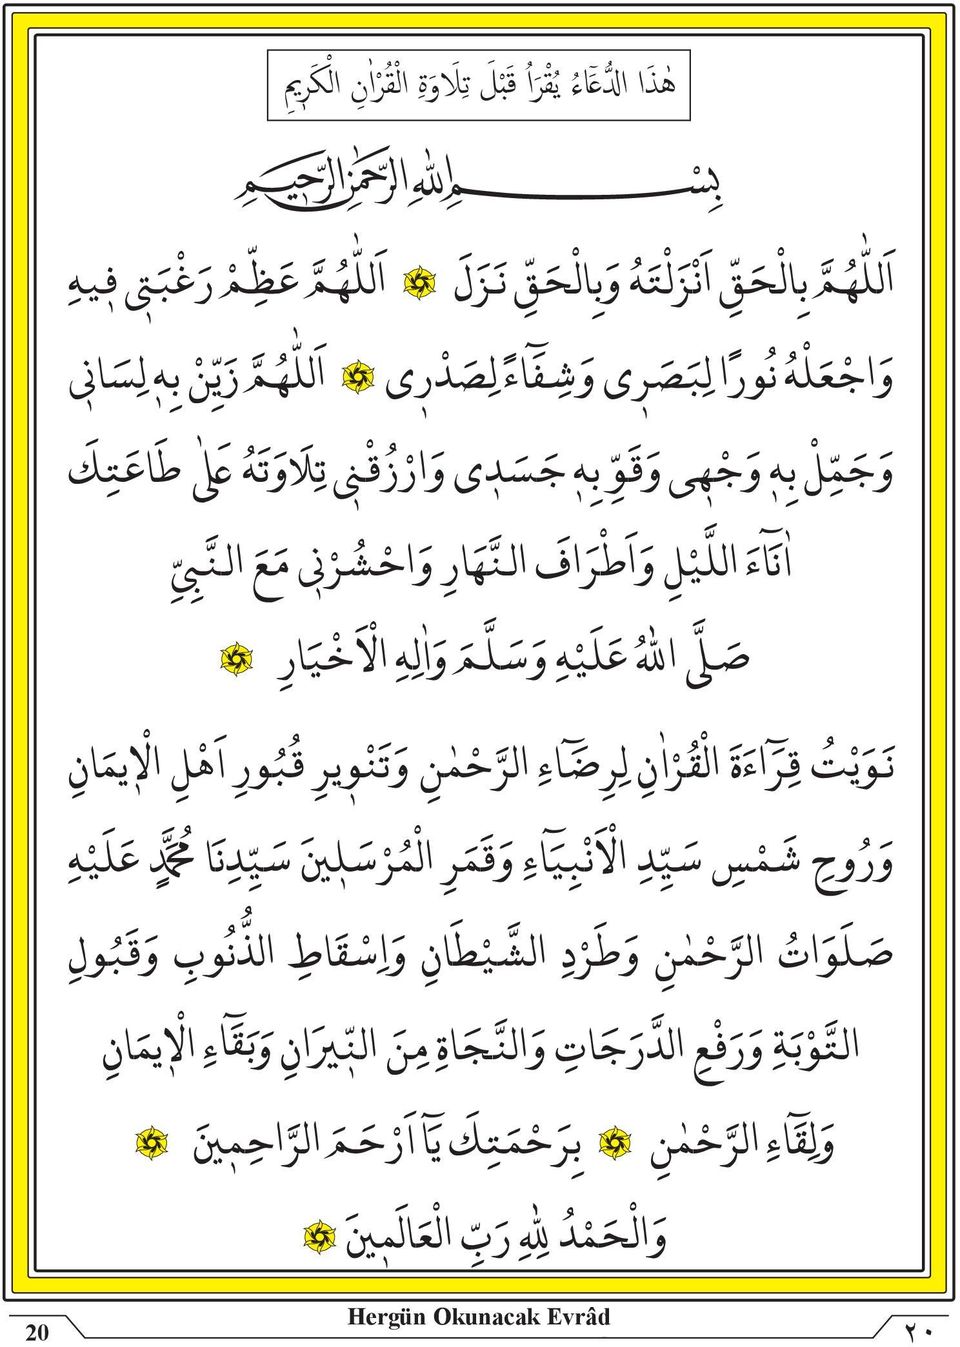 هٰذَا الدُّعَٓاءُ يُقْرَأُ قَبْلَ تِلَاوَةِ الْقُرْاٰنِ الْكَرِيمِ
بِسْمِ اللهِ الرَّحْمٰنِ الرَّحِيمِ
اَللّٰهُمَّ بِالْحَقِّ اَنْزَلْتَهُ وَبِالْحَقِّ نَزَلَ ۞ اَللّٰهُمَّ عَظِّمْ رَغْبَتِى فِيهِ
وَاجْعَلْهُ نُورًا لِبَصَرِى وَشِفَٓاءً لِصَدْرِى ۞ اَللّٰهُمَّ زَيِّنْ بِهِ لِسَانِى
وَجَمِّلْ بِهِ وَجْهِى وَقَوِّ بِهِ جَسَدِى وَارْزُقْنِى تِلَاوَتَهُ عَلٰى طَاعَتِكَ
اٰنَٓاءَ اللَّيْلِ وَاَطْرَافَ النَّهَارِ وَاحْشُرْنِى مَعَ النَّبِىِّ
صَلَّى اللهُ عَلَيْهِ وَسَلَّمَ وَاٰلِهِ الْاَخْيَارِ ۞
نَوَيْتُ قِرَٓاءَةَ الْقُرْاٰنِ لِرِضَٓاءِ الرَّحْمٰنِ وَتَنْوِيرِ قُبُورِ اَهْلِ الْاِيمَانِ
وَرُوحِ شَمْسِ سَيِّدِ الْاَنْبِيَٓاءِ وَقَمَرِ الْمُرْسَلِينَ سَيِّدِنَا مُحَمَّدٍ عَلَيْهِ
صَلَوَاتُ الرَّحْمٰنِ وَطَرْدِ الشَّيْطَانِ وَاِسْقَاطِ الذُّنُوبِ وَقَبُولِ
التَّوْبَةِ وَرَفْعِ الدَّرَجَاتِ وَالنَّجَاةِ مِنَ النِّيرَانِ وَبَقَٓاءِ الْاِيمَانِ
وَلِقَٓاءِ الرَّحْمٰنِ ۞ بِرَحْمَتِكَ يَٓا اَرْحَمَ الرَّاحِمِينَ ۞
وَالْحَمْدُ لِلّٰهِ رَبِّ الْعَالَمِينَ ۞
20 Hergün Okunacak Evrâd ٢٠